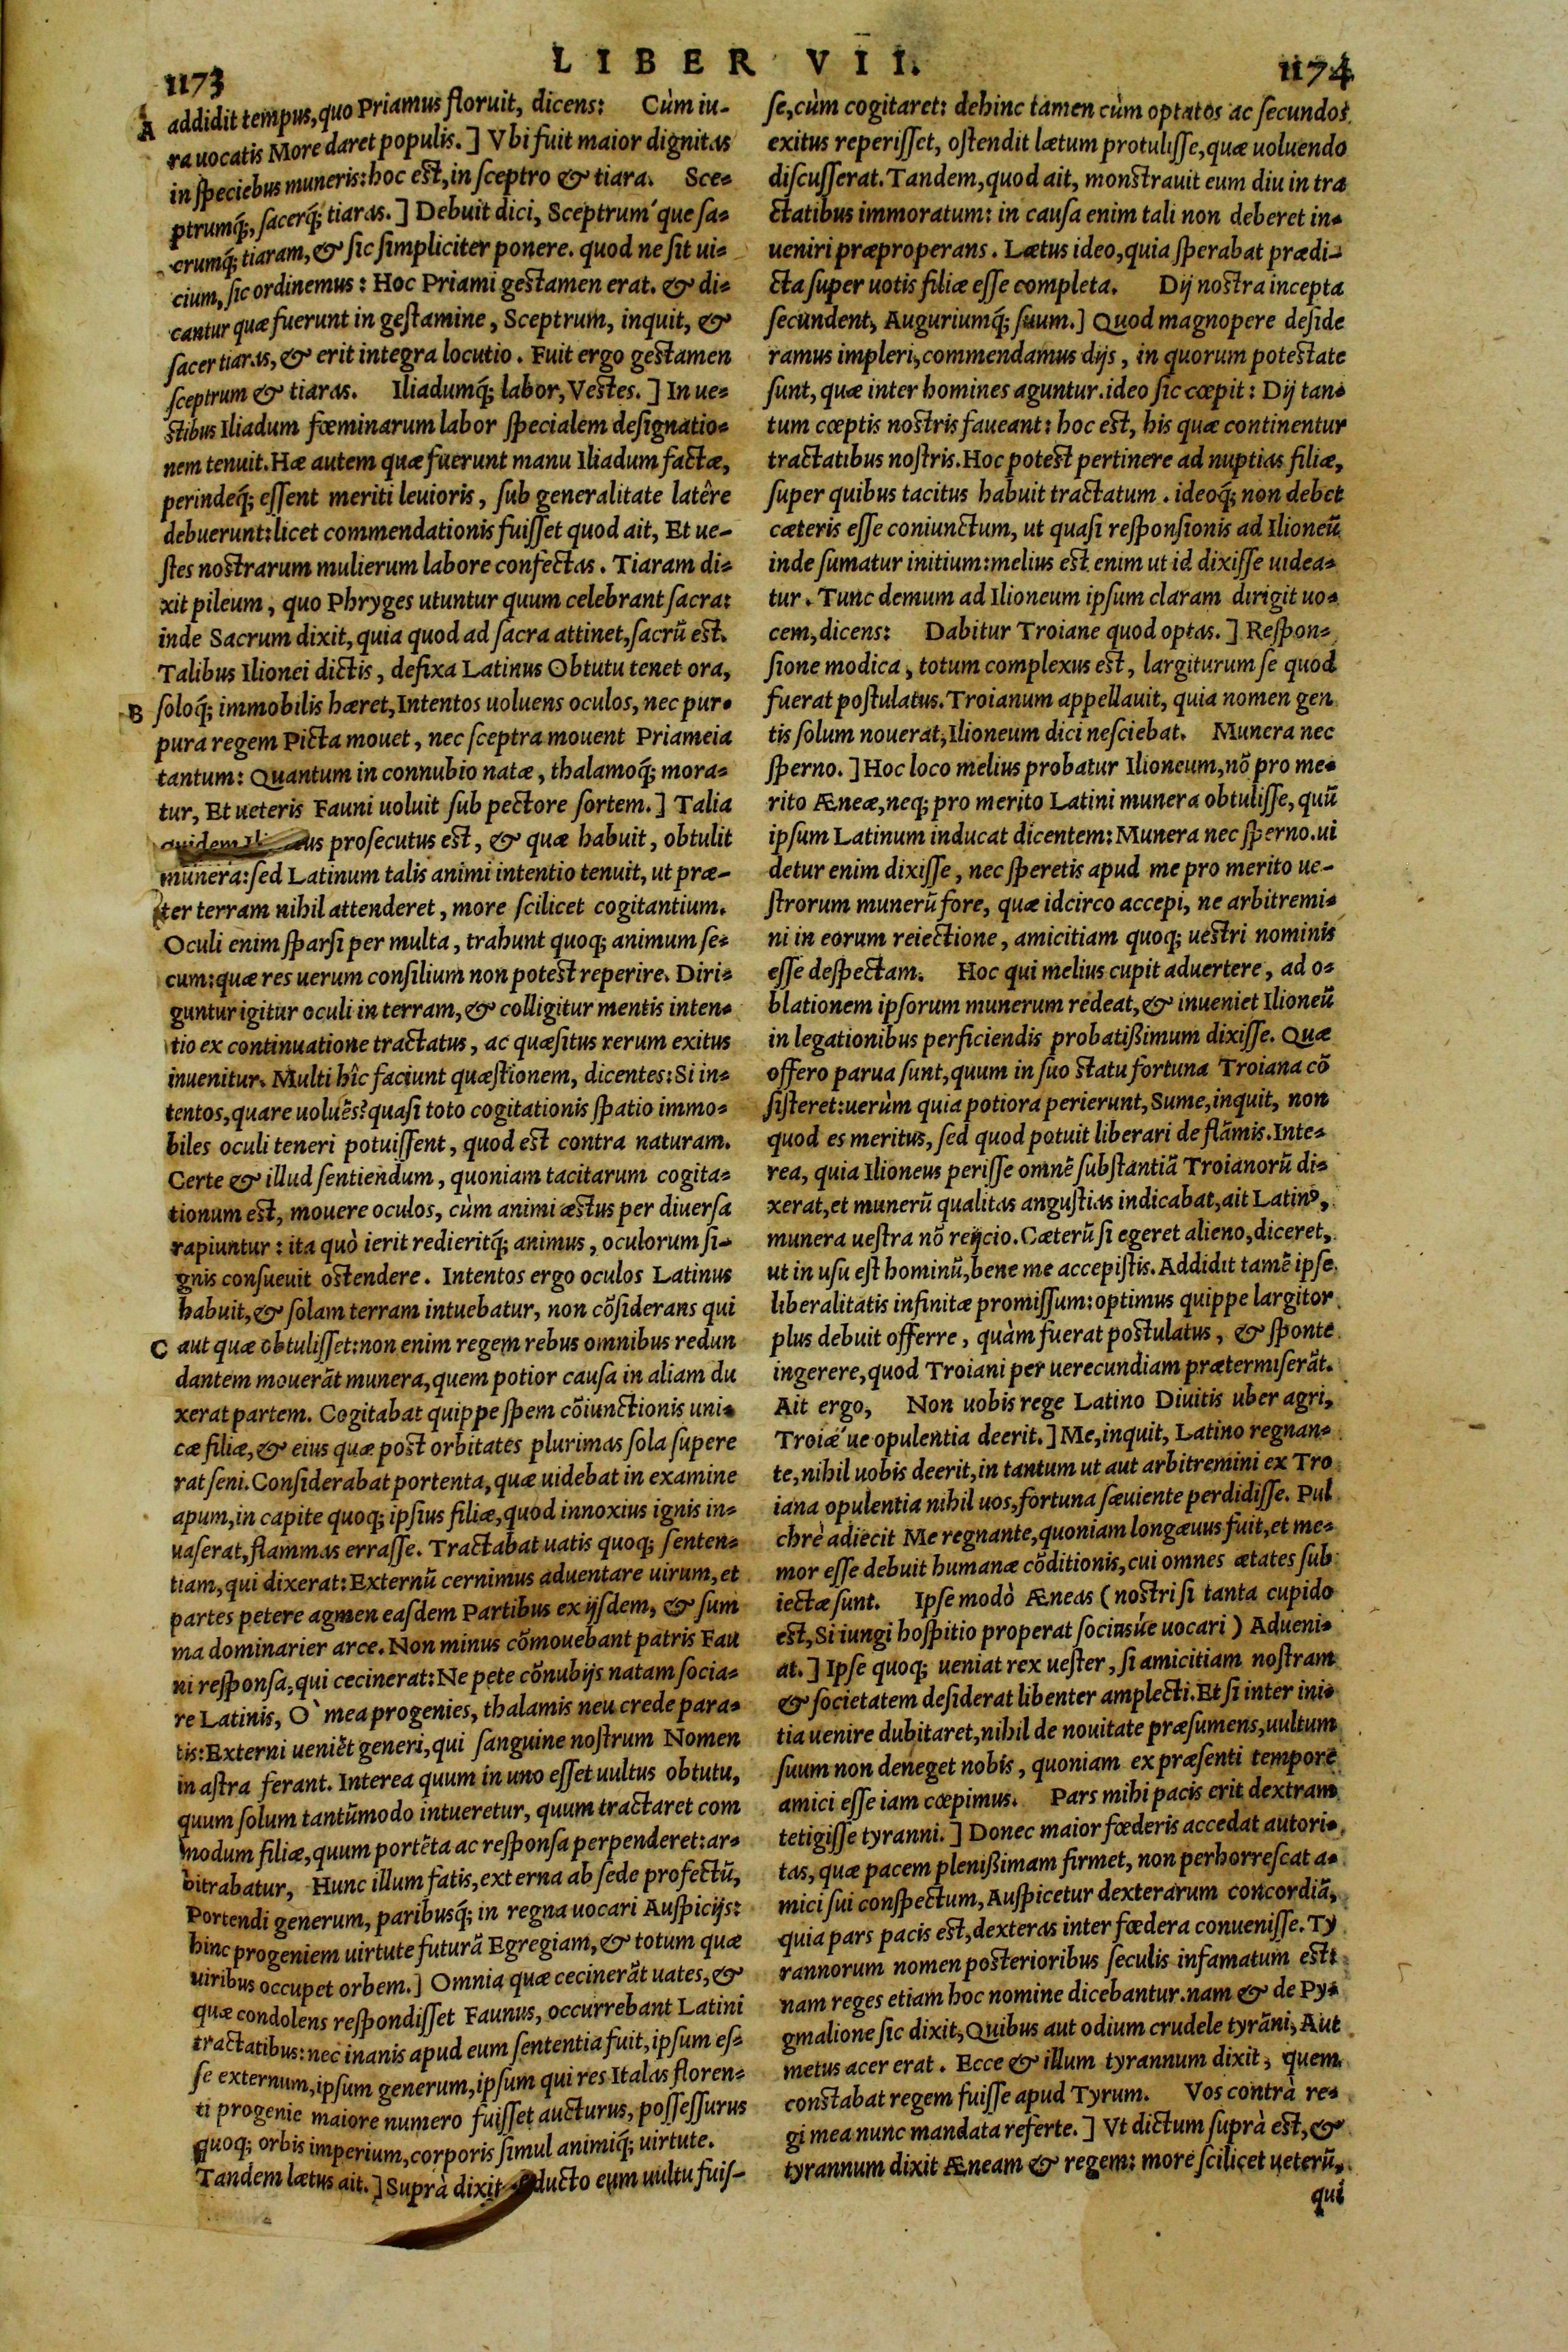 1173
LIBER VII.
1174
A
addidit tempus, quo Priamus floruit, dicens: Cùm iu-
ra uocatis More daret populis.] Vbi fuit maior dignitas
in speciebus muneris: hoc est, in sceptro & tiara. Sce-
ptrumq́;, sacerq́; tiaras.] Debuit dici, Sceptrum'que sa-
crumq́; tiaram, & sic simpliciter ponere. quod ne sit ui-
cium, sic ordinemus: Hoc Priami gestamen erat. & di-
cantur quæ fuerunt in gestamine, Sceptrum, inquit, &
sacer tiaras, & erit integra locutio. Fuit ergo gestamen
sceptrum & tiaras. Iliadumq́; labor, Vestes.] In ue-
stibus Iliadum fœminarum labor specialem designatio-
nem tenuit. Hæ autem quæ fuerunt manu Iliadum factæ,
perindeq́; essent meriti leuioris, sub generalitate latêre
debuerunt: licet commendationis fuisset quod ait, Et ue-
stes nostrarum mulierum labore confectas. Tiaram di-
xit pileum, quo Phryges utuntur quum celebrant sacra:
inde Sacrum dixit, quia quod ad sacra attinet, sacrũ est.
Talibus Ilionei dictis, defixa Latinus Obtutu tenet ora,
B
soloq́; immobilis hæret, Intentos uoluens oculos, nec pur-
pura regem Picta mouet, nec sceptra mouent Priameia
tantum: Quantum in connubio natæ, thalamoq́; mora-
tur, Et ueteris Fauni uoluit sub pectore sortem.] Talia
quidem prosecutus est, & quæ habuit, obtulit
munera: sed Latinum talis animi intentio tenuit, ut præ-
ter terram nihil attenderet, more scilicet cogitantium.
Oculi enim sparsi per multa, trahunt quoq; animum se-
cum: quæ res uerum consilium non potest reperire. Diri-
guntur igitur oculi in terram, & colligitur mentis inten-
tio ex continuatione tractatus, ac quæsitus rerum exitus
inuenitur. Multi hîc faciunt quæstionem, dicentes: Si in-
tentos, quare uoluẽs? quasi toto cogitationis spatio immo-
biles oculi teneri potuissent, quod est contra naturam.
Certe & illud sentiendum, quoniam tacitarum cogita-
tionum est, mouere oculos, cùm animi æstus per diuersa
rapiuntur: ita quò ierit redieritq́; animus, oculorum si-
gnis consueuit ostendere. Intentos ergo oculos Latinus
habuit, & solam terram intuebatur, non cõsiderans qui
C
aut quæ obtulisset: non enim regem rebus omnibus redun
dantem mouerãt munera, quem potior causa in aliam du
xerat partem. Cogitabat quippe spem cõiunctionis uni-
cæ filiæ, & eius quæ post orbitates plurimas sola supere
rat seni. Considerabat portenta, quæ uidebat in examine
apum, in capite quoq; ipsius filiæ, quod innoxius ignis in-
uaserat, flammas errasse. Tractabat uatis quoq; senten-
tiam, qui dixerat: Externũ cernimus aduentare uirum, et
partes petere agmen easdem Partibus ex ijsdem, & sum
ma dominarier arce. Non minus cõmouebant patris Fau
ni responsa, qui cecinerat: Ne pete cõnubijs natam socia-
re Latinis, O` mea progenies, thalamis neu crede para-
tis: Externi ueniẽt generi, qui sanguine nostrum Nomen
in astra ferant. Interea quum in uno esset uultus obtutu,
quum solum tantũmodo intueretur, quum tractaret com
modum filiæ, quum portẽta ac responsa perpenderet: ar-
bitrabatur, Hunc illum fatis, externa ab sede profectũ,
Portendi generum, paribusq́; in regna uocari Auspicijs:
hinc progeniem uirtute futurã Egregiam, & totum quæ
uiribus occupet orbem.] Omnia quæ cecinerãt uates, &
quæ condolens respondisset Faunus, occurrebant Latini
tractatibus: nec inanis apud eum sententia fuit, ipsum es-
se externum, ipsum generum, ipsum qui res Italas floren-
ti progenie maiore numero fuisset aucturus, possessurus
quoq; orbis imperium, corporis simul animiq́; uirtute.
Tandem lætus ait.] Suprà dixit ducto eum uultu fuis-
se, cùm cogitaret: dehinc tamen cùm optatos ac secundos
exitus reperisset, ostendit lætum protulisse, quæ uoluendo
discusserat. Tandem, quod ait, monstrauit eum diu in tra
ctatibus immoratum: in causa enim tali non deberet in-
ueniri præproperans. Lætus ideo, quia sperabat prædi-
cta super uotis filiæ esse completa. Dij nostra incepta
secundent, Auguriumq́; suum.] Quod magnopere deside
ramus impleri, commendamus dijs, in quorum potestate
sunt, quæ inter homines aguntur. ideo sic cœpit: Dij tan-
tum cœptis nostris faueant: hoc est, his quæ continentur
tractatibus nostris. Hoc potest pertinere ad nuptias filiæ,
super quibus tacitus habuit tractatum. ideoq́; non debet
cæteris esse coniunctum, ut quasi responsionis ad Ilioneũ
inde sumatur initium: melius est enim ut id dixisse uidea-
tur. Tunc demum ad Ilioneum ipsum claram dirigit uo-
cem, dicens: Dabitur Troiane quod optas.] Respon-
sione modica, totum complexus est, largiturum se quod
fuerat postulatus. Troianum appellauit, quia nomen gen
tis solum nouerat, Ilioneum dici nesciebat. Munera nec
sperno.] Hoc loco melius probatur Ilioneum, nõ pro me-
rito Æneæ, neq; pro merito Latini munera obtulisse, quũ
ipsum Latinum inducat dicentem: Munera nec sperno. ui
detur enim dixisse, nec speretis apud me pro merito ue-
strorum munerũ fore, quæ idcirco accepi, ne arbitremi-
ni in eorum reiectione, amicitiam quoq; uestri nominis
esse despectam. Hoc qui melius cupit aduertere, ad o-
blationem ipsorum munerum redeat, & inueniet Ilioneũ
in legationibus perficiendis probatißimum dixisse. Quæ
offero parua sunt, quum in suo statu fortuna Troiana cõ
sisteret: uerùm quia potiora perierunt, Sume, inquit, non
quod es meritus, sed quod potuit liberari de flãmis. Inte-
rea, quia Ilioneus perisse omnẽ substantiã Troianorũ di-
xerat, et munerũ qualitas angustias indicabat, ait Latinꝰ,
munera uestra nõ reijcio. Cæterũ si egeret alieno, diceret,
ut in usu est hominũ, bene me accepistis. Addidit tamẽ ipse
liberalitatis infinitæ promissum: optimus quippe largitor
plus debuit offerre, quàm fuerat postulatus, & sponte
ingerere, quod Troiani per uerecundiam prætermiserãt.
Ait ergo, Non uobis rege Latino Diuitis uber agri,
Troiæ'ue opulentia deerit.] Me, inquit, Latino regnan-
te, nihil uobis deerit, in tantum ut aut arbitremini ex Tro
iana opulentia nihil uos, fortuna sæuiente perdidisse. Pul
chrè adiecit Me regnante, quoniam longæuus fuit, et me-
mor esse debuit humanæ cõditionis, cui omnes ætates sub
iectæ sunt. Ipse modò Æneas (nostri si tanta cupido
est, Si iungi hospitio properat sociusúe uocari) Adueni-
at.] Ipse quoq; ueniat rex uester, si amicitiam nostram
& societatem desiderat libenter amplecti. Et si inter ini-
tia uenire dubitaret, nihil de nouitate præsumens, uultum
suum non deneget nobis, quoniam ex præsenti tempore
amici esse iam cœpimus. Pars mihi pacis erit dextram
tetigisse tyranni.] Donec maior fœderis accedat autori-
tas, quæ pacem plenißimam firmet, non perhorrescat a-
mici sui conspectum, Auspicetur dexterarum concordiã,
quia pars pacis est, dexteras inter fœdera conuenisse. Ty
rannorum nomen posterioribus seculis infamatum est:
nam reges etiam hoc nomine dicebantur. nam & de Py-
gmalione sic dixit, Quibus aut odium crudele tyrãni, Aut
metus acer erat. Ecce & illum tyrannum dixit, quem
constabat regem fuisse apud Tyrum. Vos contrà re-
gi mea nunc mandata referte.] Vt dictum suprà est, &
tyrannum dixit Æneam & regem: more scilicet ueterũ,
qui